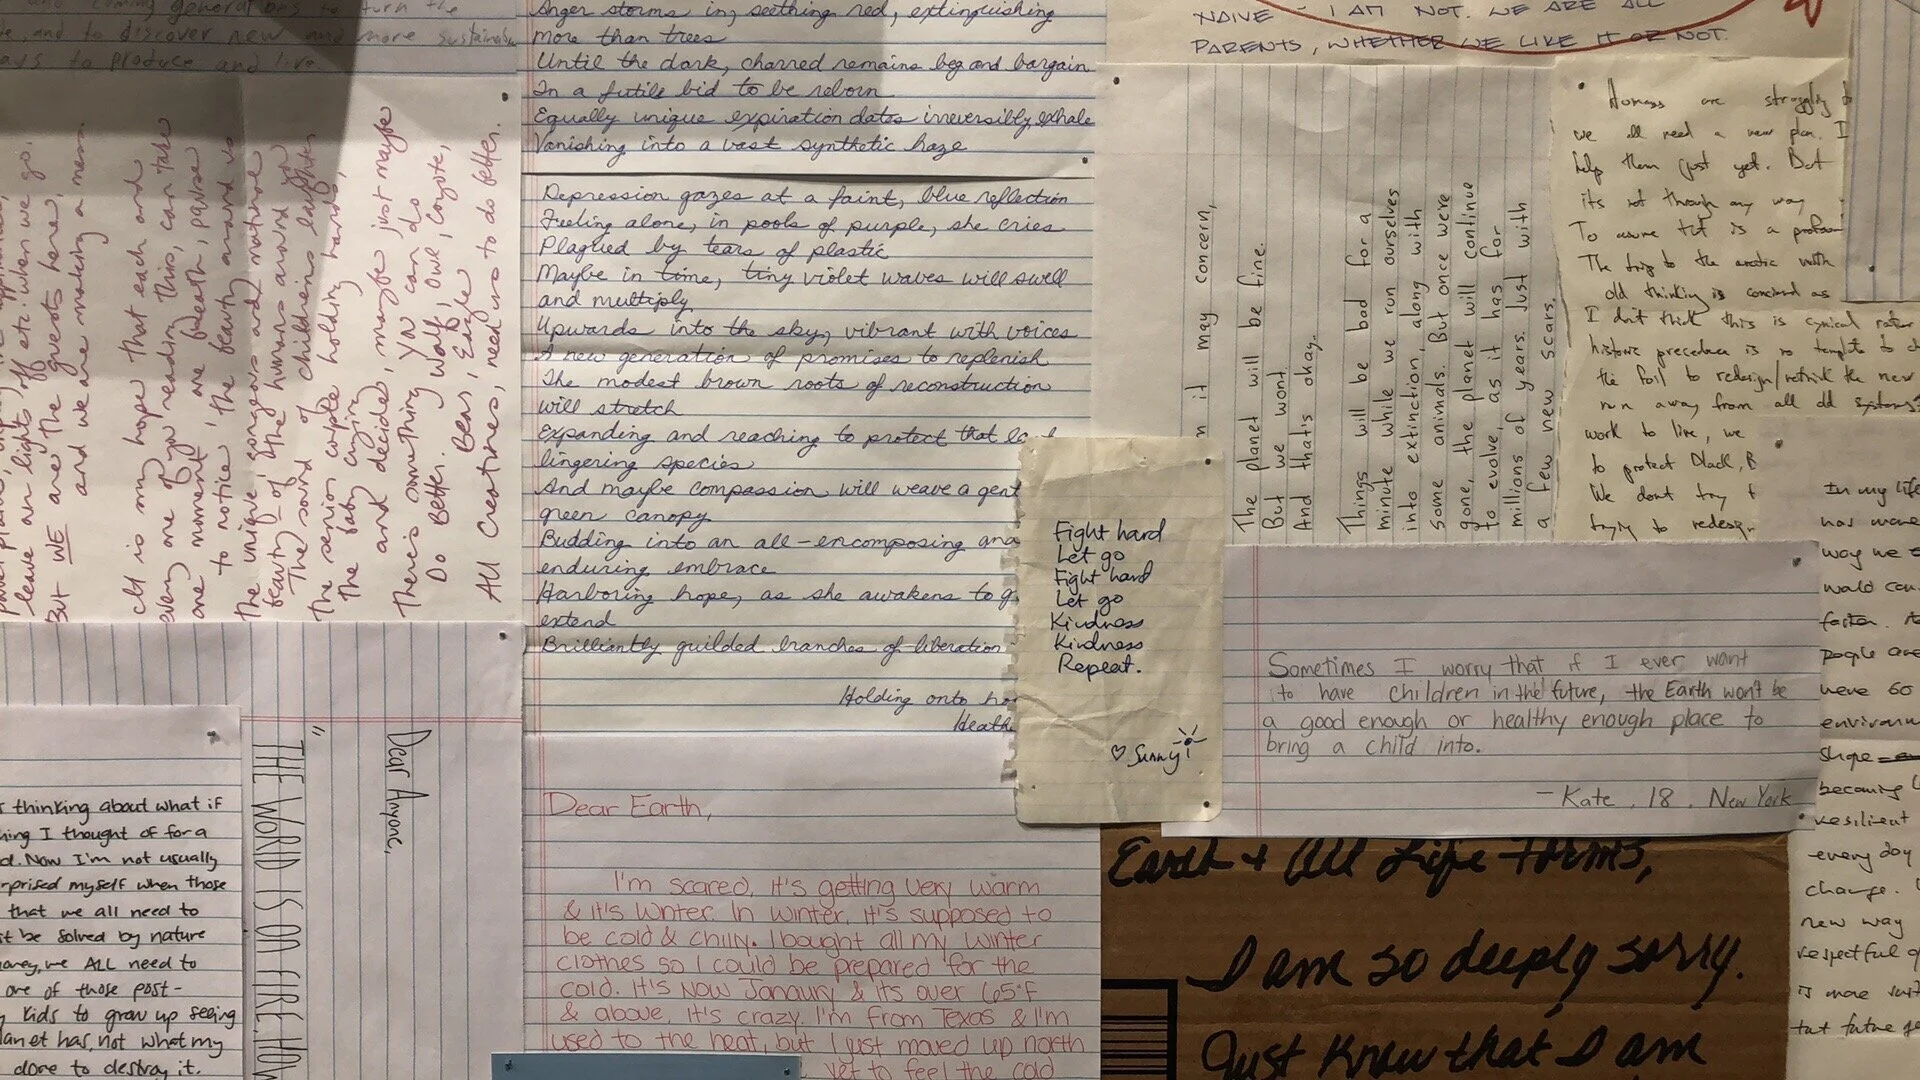 and coming generations to turn the
and to discover new and more sustainable
ways to produce and live
leave an lights off etc. when we go.
But WE are the guests here,
and we are making a mess.
It is my hope that each and
every one of you reading this, can take
one moment, one breath, pause
to notice, the beauty around us
The unique, gorgeous and natural
beauty of the humans around you
The sound of childrens laughter
The senior couple holding hands,
The baby crying
and decide, maybe just maybe
There's something you can do
Do Better.
Bear, Eagle, Wolf, Owl, Coyote,
All Creatures, need us to do better.
Anger storms in, seething red, extinguishing
more than trees
Until the dark, charred remains beg and bargain
In a futile bid to be reborn
Equally unique expiration dates irreversibly exhale
Vanishing into a vast synthetic haze
Depression gazes at a faint, blue reflection
Feeling alone, in pools of purple, she cries
Plagued by tears of plastic
Maybe in time, tiny violet waves will swell
and multiply
Upwards into the sky, vibrant with voices
A new generation of promises to replenish
The modest brown roots of reconstruction
will stretch
Expanding and reaching to protect that
lingering species
And maybe compassion will weave a
green canopy
Budding into an all-encomposing
enduring embrace
Harboring hope, as she awakens to
extend
Brilliantly guilded branches of liberation
Holding onto
NAIVE - I AM NOT. WE ARE ALL
PARENTS, WHETHER WE LIKE IT OR NOT.
it may concern,
The planet will be fine.
But we wont.
And that's okay.
Things will be bad for a
minute while we run ourselves
into extinction, along with
some animals. But once we're
gone, the planet will continue
to evolve, as it has for
millions of years. Just with
a few new scars.
Humans are struggling
we all need a new plan. I
help them just yet. But
its not through any way
The trip to the arctic with
old thinking is concerned as
I don't think this is cynical rather
historic precedence is no template to
the foil to redesign/rethink the new
run away from all old systems
work to live, we
to protect Black,
We dont try
trying to redesign
Fight hard
Let go
Fight hard
Let go
Kindness
Kindness
Repeat.
♡ Sunny
Sometimes I worry that if I ever want
to have children in the future, the Earth won't be
a good enough or healthy enough place to
bring a child into.
- Kate, 18, New York
In my life
has
way we
world
faster.
people are
were 60
shape
becoming
resilient
every day
change.
new way
respectful
is more
that future
thinking about what if
thing I thought of for a
Now I'm not usually
surprised myself when those
that we all need to
be solved by nature
money, we ALL need to
are of those post-
kids to grow up seeing
planet has, not what my
done to destroy it.
"
THE WORLD IS ON FIRE. HOW
Dear Anyone,
Dear Earth,
I'm scared, it's getting very warm
& it's winter. In winter, it's supposed to
be cold & chilly. I bought all my winter
clothes so I could be prepared for the
cold. It's now Janaury & its over 65°F
& above, it's crazy. I'm from Texas & I'm
used to the heat, but I just moved up north
yet to feel the cold
Earth + All Life Forms,
I am so deeply sorry.
Just Know that I am